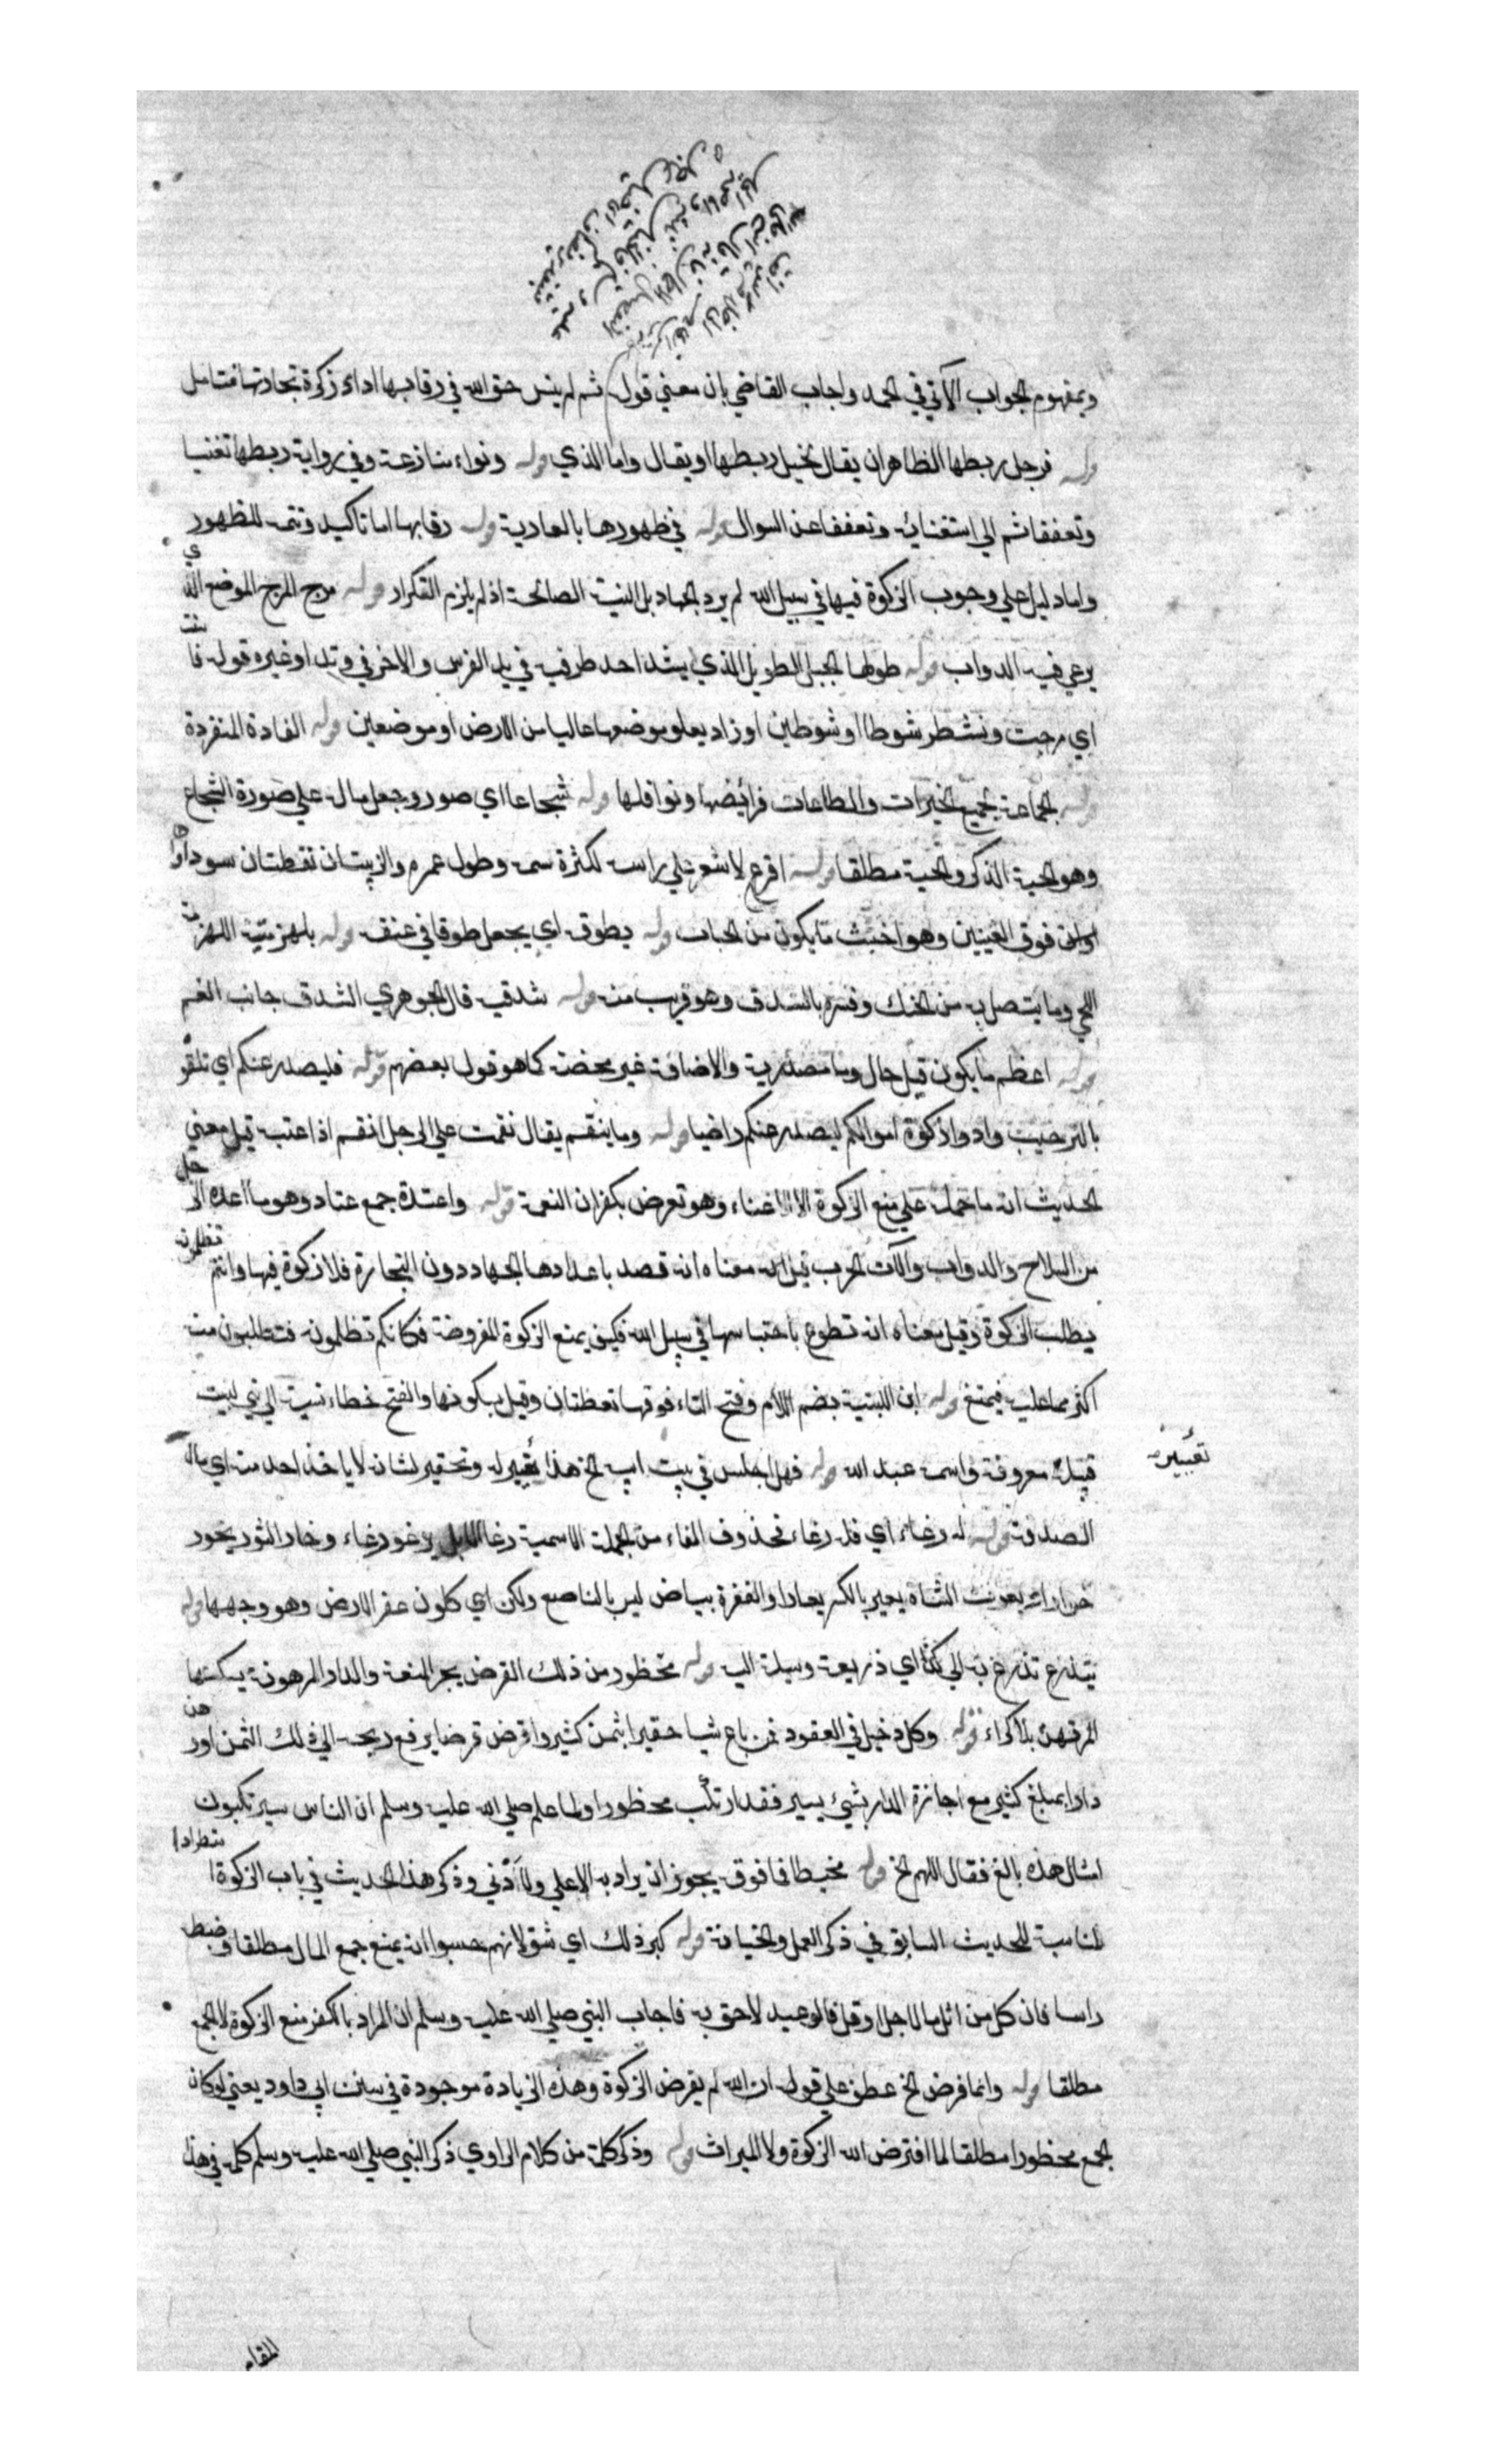 وبمفهوم الجواب الآتي في الحمد واجاب القاضي بان معني قوله ثم لم ينس حق الله في رقابها اداء زكوة تجارتها فتامل
قوله فرجل ربطها الظاهر ان يقال لخيل ربطها او يقال واما الذي قوله ونواء منازعة وفي رواية ربطها تغنيا
وتعففا ثم الي استغنائه وتعففا عن السوال قوله في ظهورها بالعارية قوله رقابها اما تاكيد وتتمه للظهور
واما دليل علي وجوب الزكوة فيها في سبيل الله لم يرد الجهاد بل النية الصالحة اذ لم يلزم التكرار قوله مرج المرج الموضع الذي
يرعي فيه الدواب قوله طولها الحبل الطويل الذي يشد احد طرفيه في يد الفرس والاخر في وتد او غيره قوله فاستنت
اي مرجت ونشطر شوطا او شوطين او زاد يعلو موضعها عاليا من الارض او موضعين قوله الفاذة المنفردة
قوله الجماعة لجميع الخيرات والطاعات فرائضها ونوافلها قوله شجاعا اي صور وجعل ماله علي صورة الشجاع
وهو الحية الذكر والحية مطلقا قوله اقرع لا شعر علي راسه لكثرة سمه وطول عمره والزبيبتان نقطتان سوداوان
فوق العينين وهو اخبث ما يكون من الحيات قوله يطوقه اي يجعل طوقا في عنقه قوله بلهزمتيه اللهزمة
اللحي وما يتصل به من الحنك وفسره بالشدق وهو قريب منه قوله شدقيه قال الجوهري الشدق جانب الفم
قوله اعظم ما يكون قيل حال وما مصدرية والاضافة غير محضة كما هو قول بعضهم قوله فليصدر عنكم اي تلقوه
بالترحيب وادوا زكوة اموالكم ليصدر عنكم راضيا قوله وما ينقم يقال نقمت علي الرجل انقم اذا عتب قيل معني
الحديث انه ما حمله علي منع الزكوة الا الاغناء وهو تعرض بكفران النعمة قوله واعتده جمع عتاد وهو ما اعده الرجل
من السلاح والدواب والآت الحرب قيل انه معناه انه قصد باعدادها الجهاد دون التجارة فلا زكوة فيها وانتم تظلمونه
يطلب الزكوة وقيل معناه انه تطوع باحتباسها في سبيل الله فكيف يمنع الزكوة المفروضة فكانكم تظلمونه فتطلبون منه
اكثر مما عليه فيمتنع قوله ابن اللبتية بضم اللام وفتح التاء فوقها نقطتان وقيل بسكونها والفتح خطاء نسبت الي بني لبيت
قبيلة معروفة واسمه عبد الله قوله فهلا جلس في بيت ابيه الخ هذا تعيير له وتحقير لشانه لا ياخذ احد منه اي مال
تعيير
الصدقة قوله له رغاء اي فله رغاء فحذوف الفاء من الجملة الاسمية رغا الابل يرغو رغاء وخار الثور يخور
خوارا ويعرت الشاة يعير بالكسر يعارا والعفرة بياض ليس بالناصع ولكن اي كلون عفر الارض وهو وجهها قوله
يتذرع تذرع به الي كذا اي ذريعة وسيلة اليه قوله محظور من ذلك القرض يجر المنفعة والدار المرهونة يسكنها
المرتهن بلا كراء قوله وكل دخيل في العقود فمن باع شيا حقيرا بثمن كثير واقرض قرضا يرفع ربحه الي ذلك الثمن اورهن
دارا بمبلغ كثير مع اجازة الدار بشيء يسير فقد ارتكب محظورا ولما علم صلي الله عليه وسلم ان الناس سيرتكبون
امثال هذه بالغ فقال اللهم الخ قوله مخيطا فما فوقه يجوز ان يراد به الاعلي والادني وذكر هذا الحديث في باب الزكوة استطرادا
لمناسبة للحديث السابق في ذكر العمل والخيانة قوله كبر ذلك اي شق لانهم حسبوا انه يمنع جمع المال مطلقا وضبطه
راسا فان كل من اثل مالا جل او قل فالوعيد لاحق به فاجاب النبي صلي الله عليه وسلم ان المراد بالكنز منع الزكوة لا الجمع
مطلقا قوله وانما فرض الخ عطف علي قوله ان الله لم يفرض الزكوة وهذه الزيادة موجودة في سنن ابي داود يعني لو كان
الجمع محظورا مطلقا لما افترض الله الزكوة ولا الميراث قوله وذكر كلمة من كلام الراوي ذكر النبي صلي الله عليه وسلم كلمة في هذا
المقام